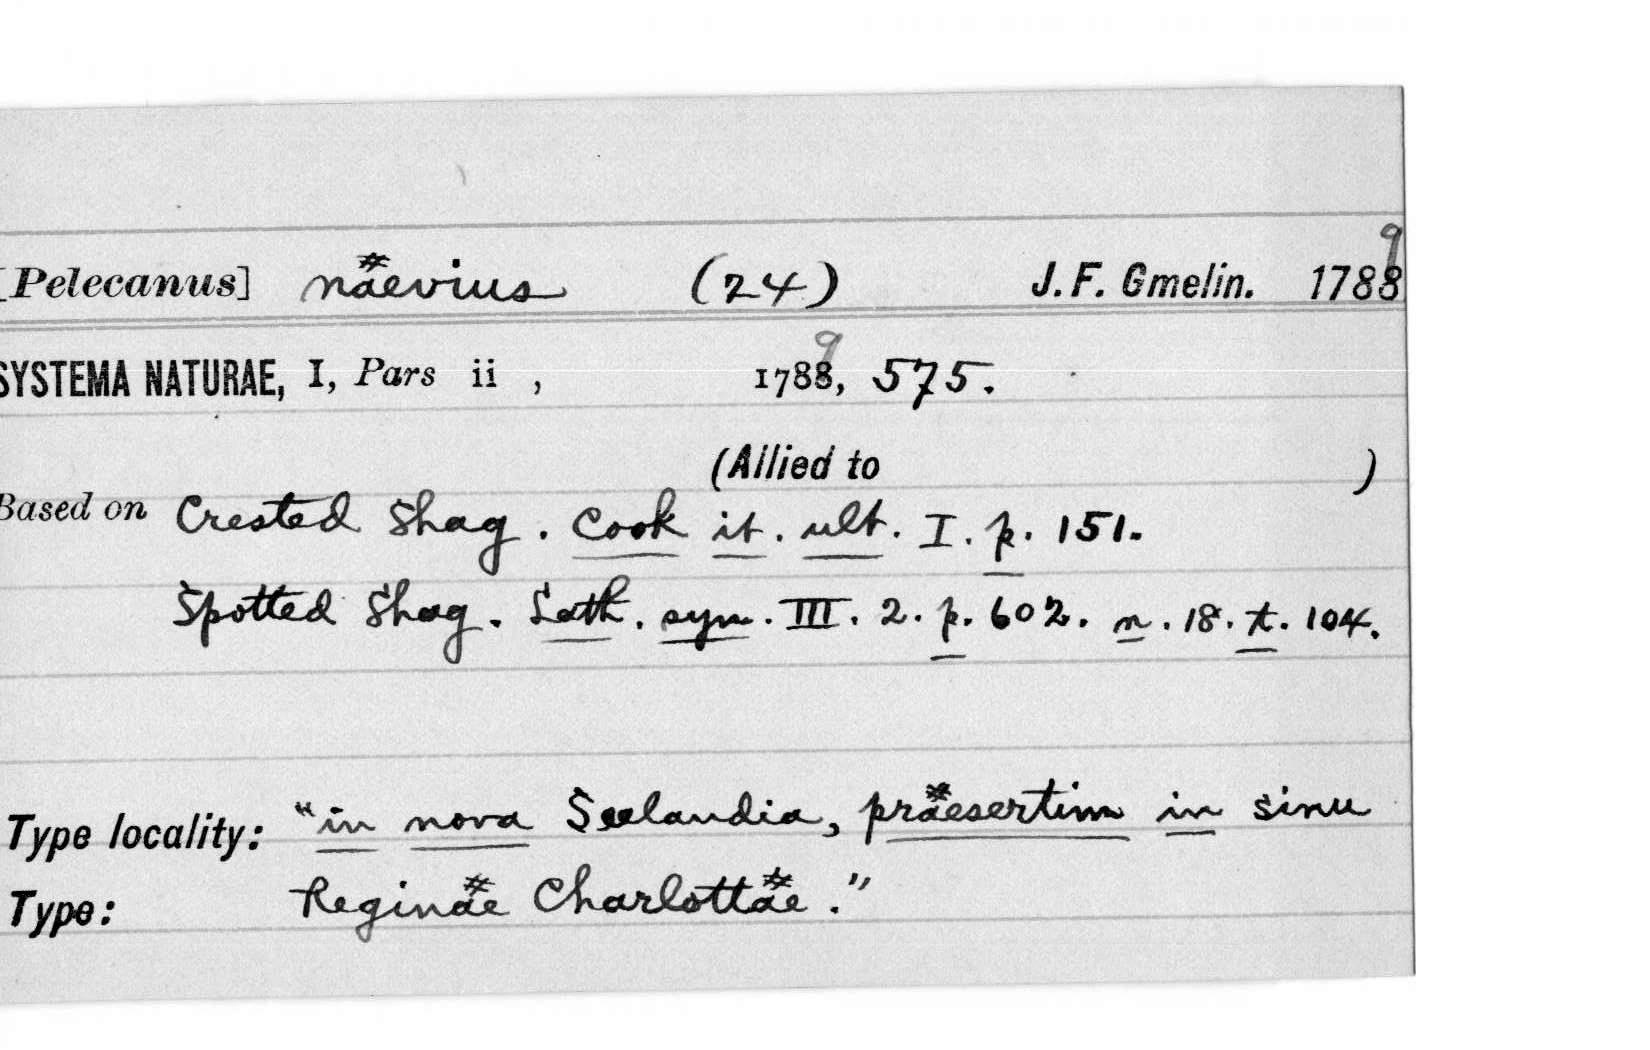 [Pelecanus] nævius (24) J. F. Gmelin. 1788 9
SYSTEMA NATURAE, I, Pars ii , 1788, 9 575.
(Allied to )
Based on Crested Shag. Cook it. ult. I. p. 151.
Spotted Shag. Lath. syn. III. 2. p. 602. n. 18. t. 104.
Type locality: "in nova Seelandia, præsertim in sinu
Type: Reginæ Charlottæ."